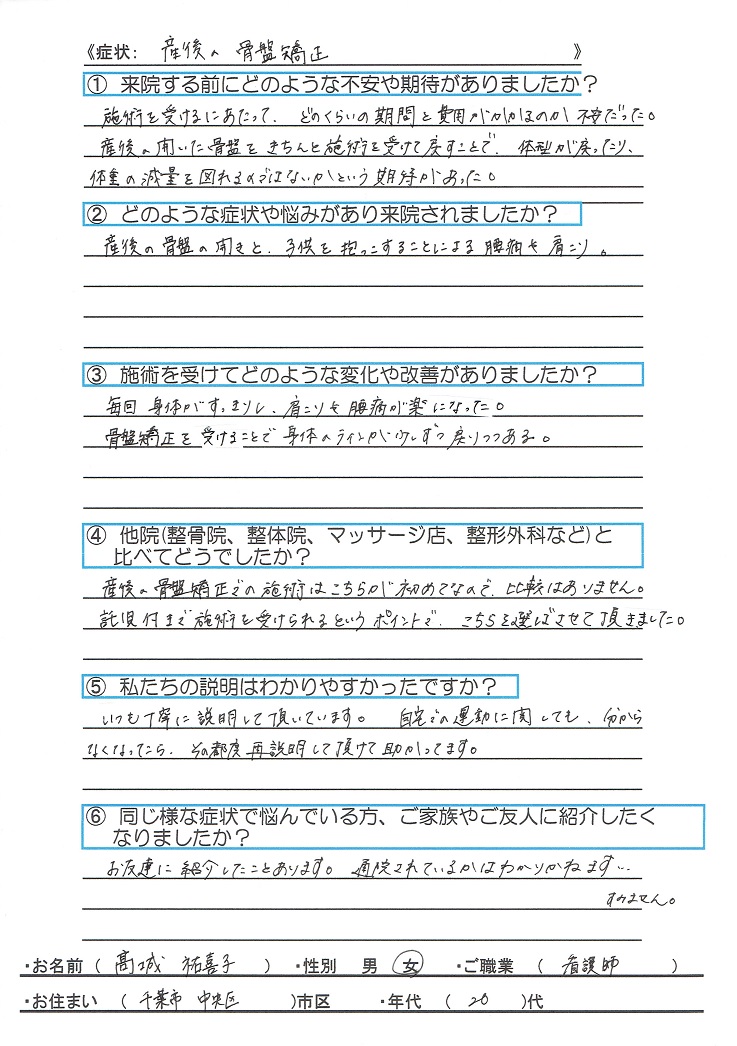 《症状： 産後の骨盤矯正 》
① 来院する前にどのような不安や期待がありましたか？
施術を受けるにあたって、どのくらいの期間と費用がかかるのか不安だった。
産後の開いた骨盤をきちんと施術を受けて戻すことで、体型が戻ったり、
体重の減量を図れるのではないかという期待があった。
② どのような症状や悩みがあり来院されましたか？
産後の骨盤の開きと、子供を抱っこすることによる腰痛や肩こり。
③ 施術を受けてどのような変化や改善がありましたか？
毎回身体がすっきりし、肩こりや腰痛が楽になった。
骨盤矯正を受けることで身体のラインが少しずつ戻りつつある。
④ 他院(整骨院、整体院、マッサージ店、整形外科など)と
比べてどうでしたか？
産後の骨盤矯正での施術はこちらが初めてなので、比較はありません。
託児付きで施術を受けられるというポイントで、こちらを選ばさせて頂きました。
⑤ 私たちの説明はわかりやすかったですか？
いつも丁寧に説明して頂いています。 自宅での運動に関しても、分から
なくなってたら、その都度再説明して頂けて助かってます。
⑥ 同じ様な症状で悩んでいる方、ご家族やご友人に紹介したく
なりましたか？
お友達に紹介したことあります。通院されているかはわかりかねます…
すみません。
・お名前 （ 髙城 祐喜子 ） ・性別 男 女 ・ご職業 （ 看護師 ）
・お住まい （ 千葉市 中央区 ）市区 ・年代 （ 20 ）代